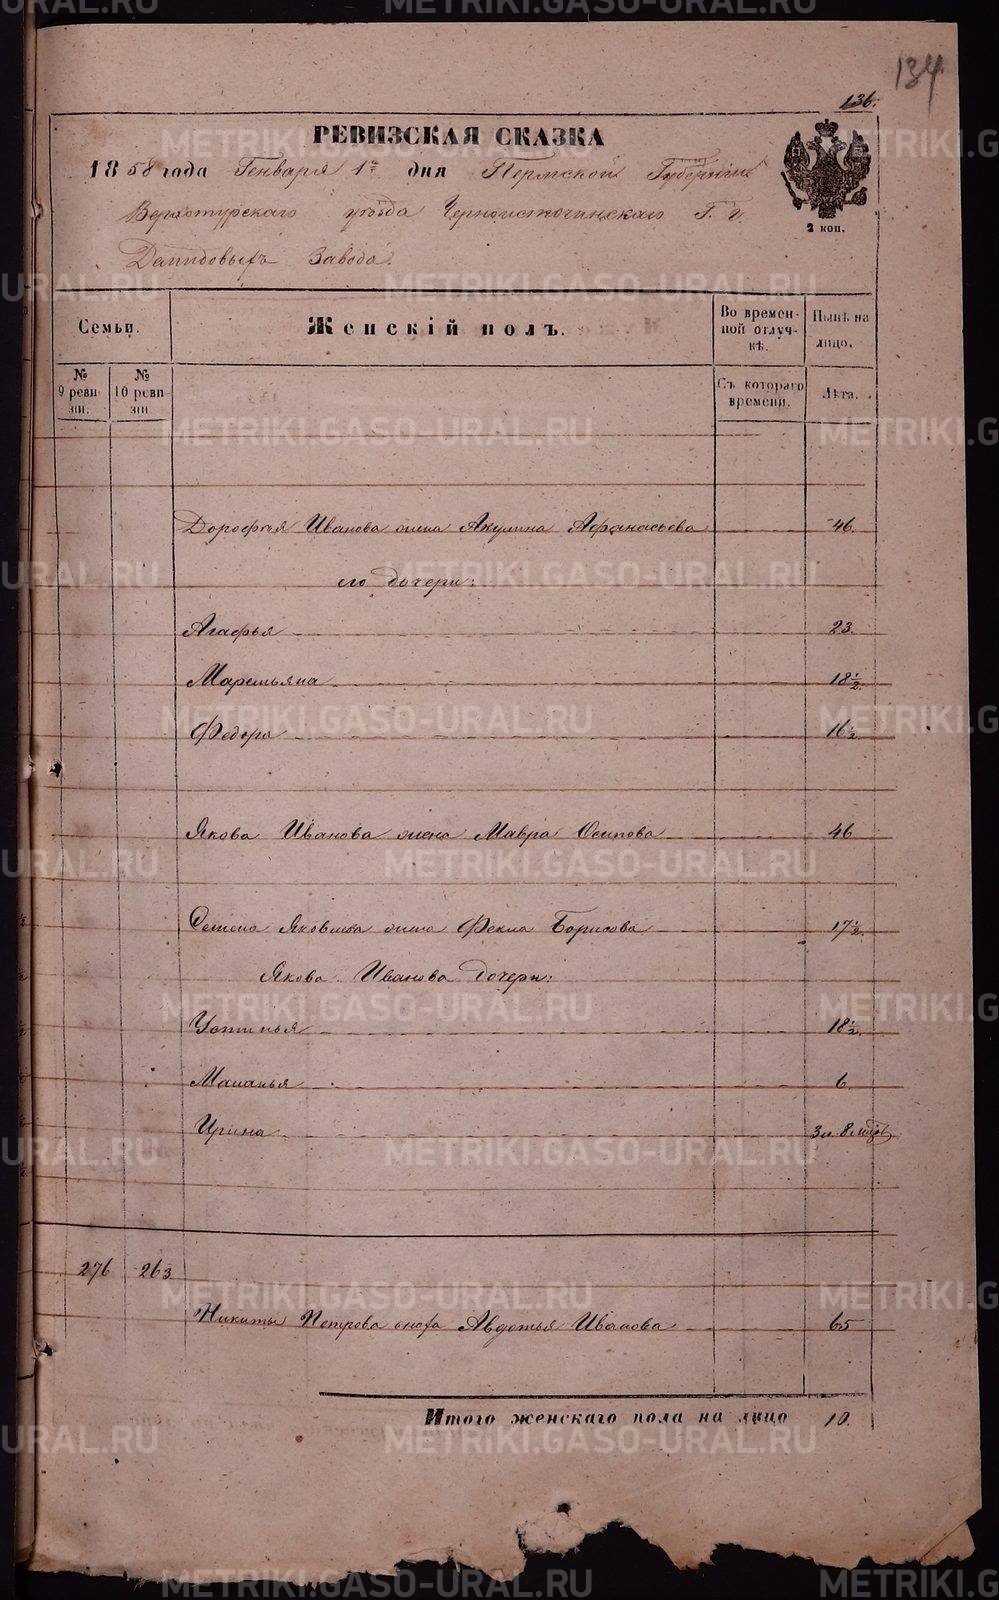 134
136.
РЕВИЗСКАЯ СКАЗКА
1858 года Генваря 1го дня Пермской Губернии
Верхотурскаго уѣзда Черноисточинскаго Г. г.
Демидовыхъ Завода.
2 коп.
Семьи. Женскій полъ. Во временной отлучкѣ. Нынѣ на лицо.
№ 9 ревизіи. № 10 ревизіи. Съ котораго времени. Лѣта.
Дорофѣя Иванова жена Акулина Афанасьева 46.
его дочери:
Агафья 23.
Маремьяна 18½.
Федора 16½.
Якова Иванова жена Мавра Осипова 46
Семена Яковлева жена Фекла Борисова 17½.
Якова Иванова дочери:
Устинья 18½.
Маланья 6.
Ирина 3 л. 8 мцов
276 263
Никиты Петрова сноха Авдотья Иванова 65
Итого женскаго пола на лицо 10.
METRIKI.GASO-URAL.RU